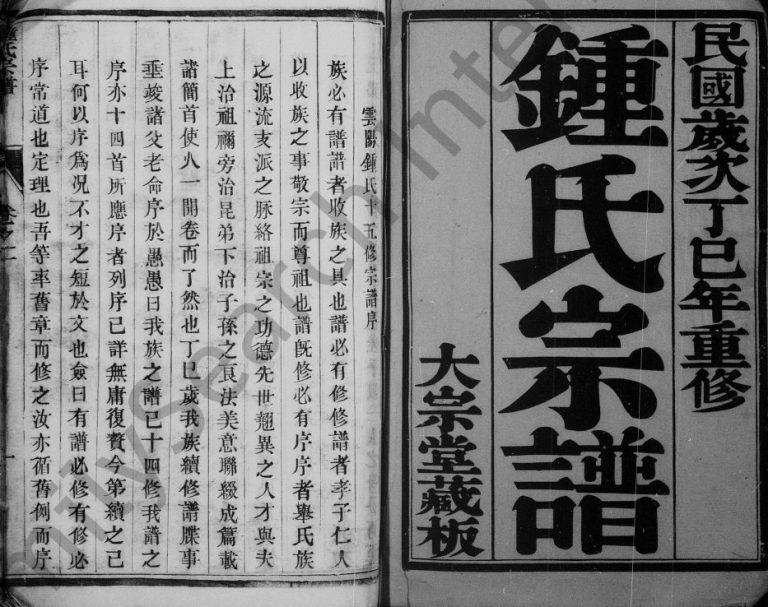 民國歲次丁巳年重修
鍾氏宗譜
大宗堂藏板
雲陽鍾氏十五修宗譜序
族必有譜譜者收族之具也譜必有修修譜者孝子仁人
以收族之事敬宗而尊祖也譜既修必有序序者舉氏族
之源流支派之脉絡祖宗之功德先世翹異之人才與夫
上治祖禰旁治昆弟下治子孫之良法美意聯綴成篇載
諸簡首使人一開卷而了然也丁巳歲我族續修譜牒事
垂竣諸父老命序於愚愚曰我族之譜已十四修我譜之
序亦十四首所應序者列序已詳無庸復贅今第續之已
耳何以序為况不才之短於文也僉曰有譜必修有修必
序常道也定理也吾等率舊章而修之汝亦循舊例而序
氏宗譜
卷之二
一
FamilySearch Inte